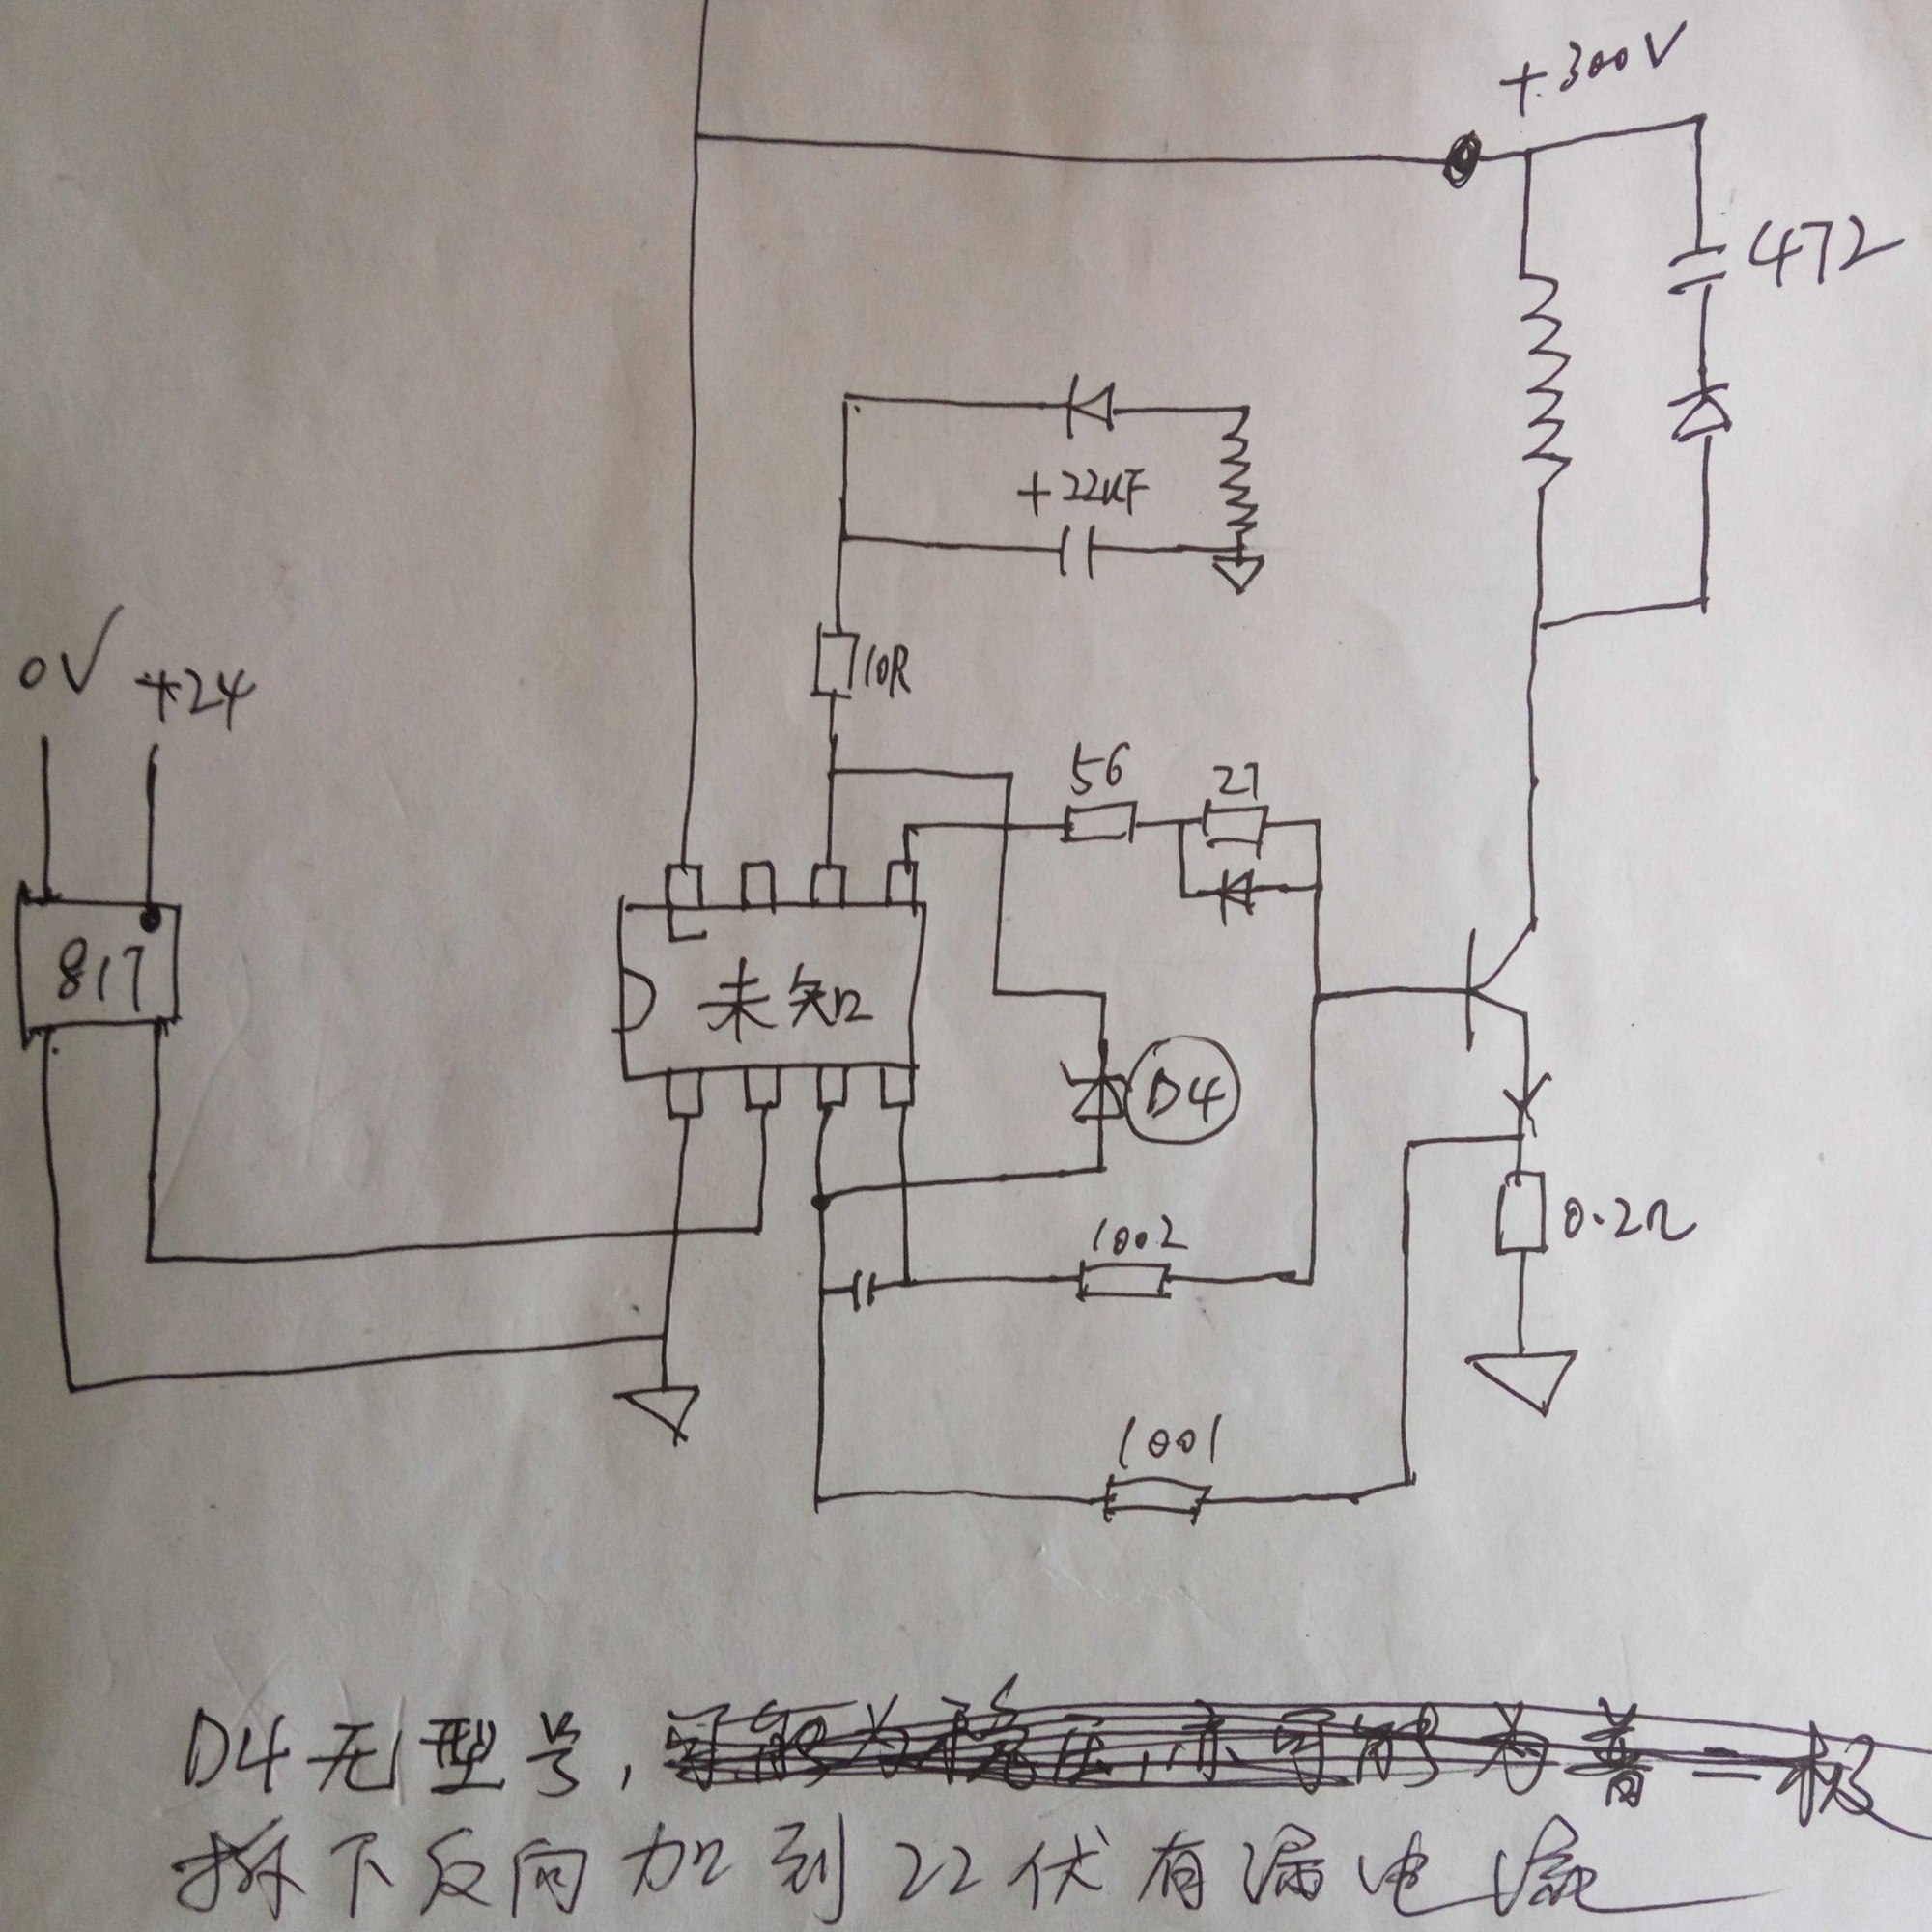 +300V
472
+22uF
0V +24
10R
56 27
817
未知
D4
1002
0.2Ω
1001
D4无型号，可能为稳压，亦可能为普二极
拆下反向加到22伏有漏电流